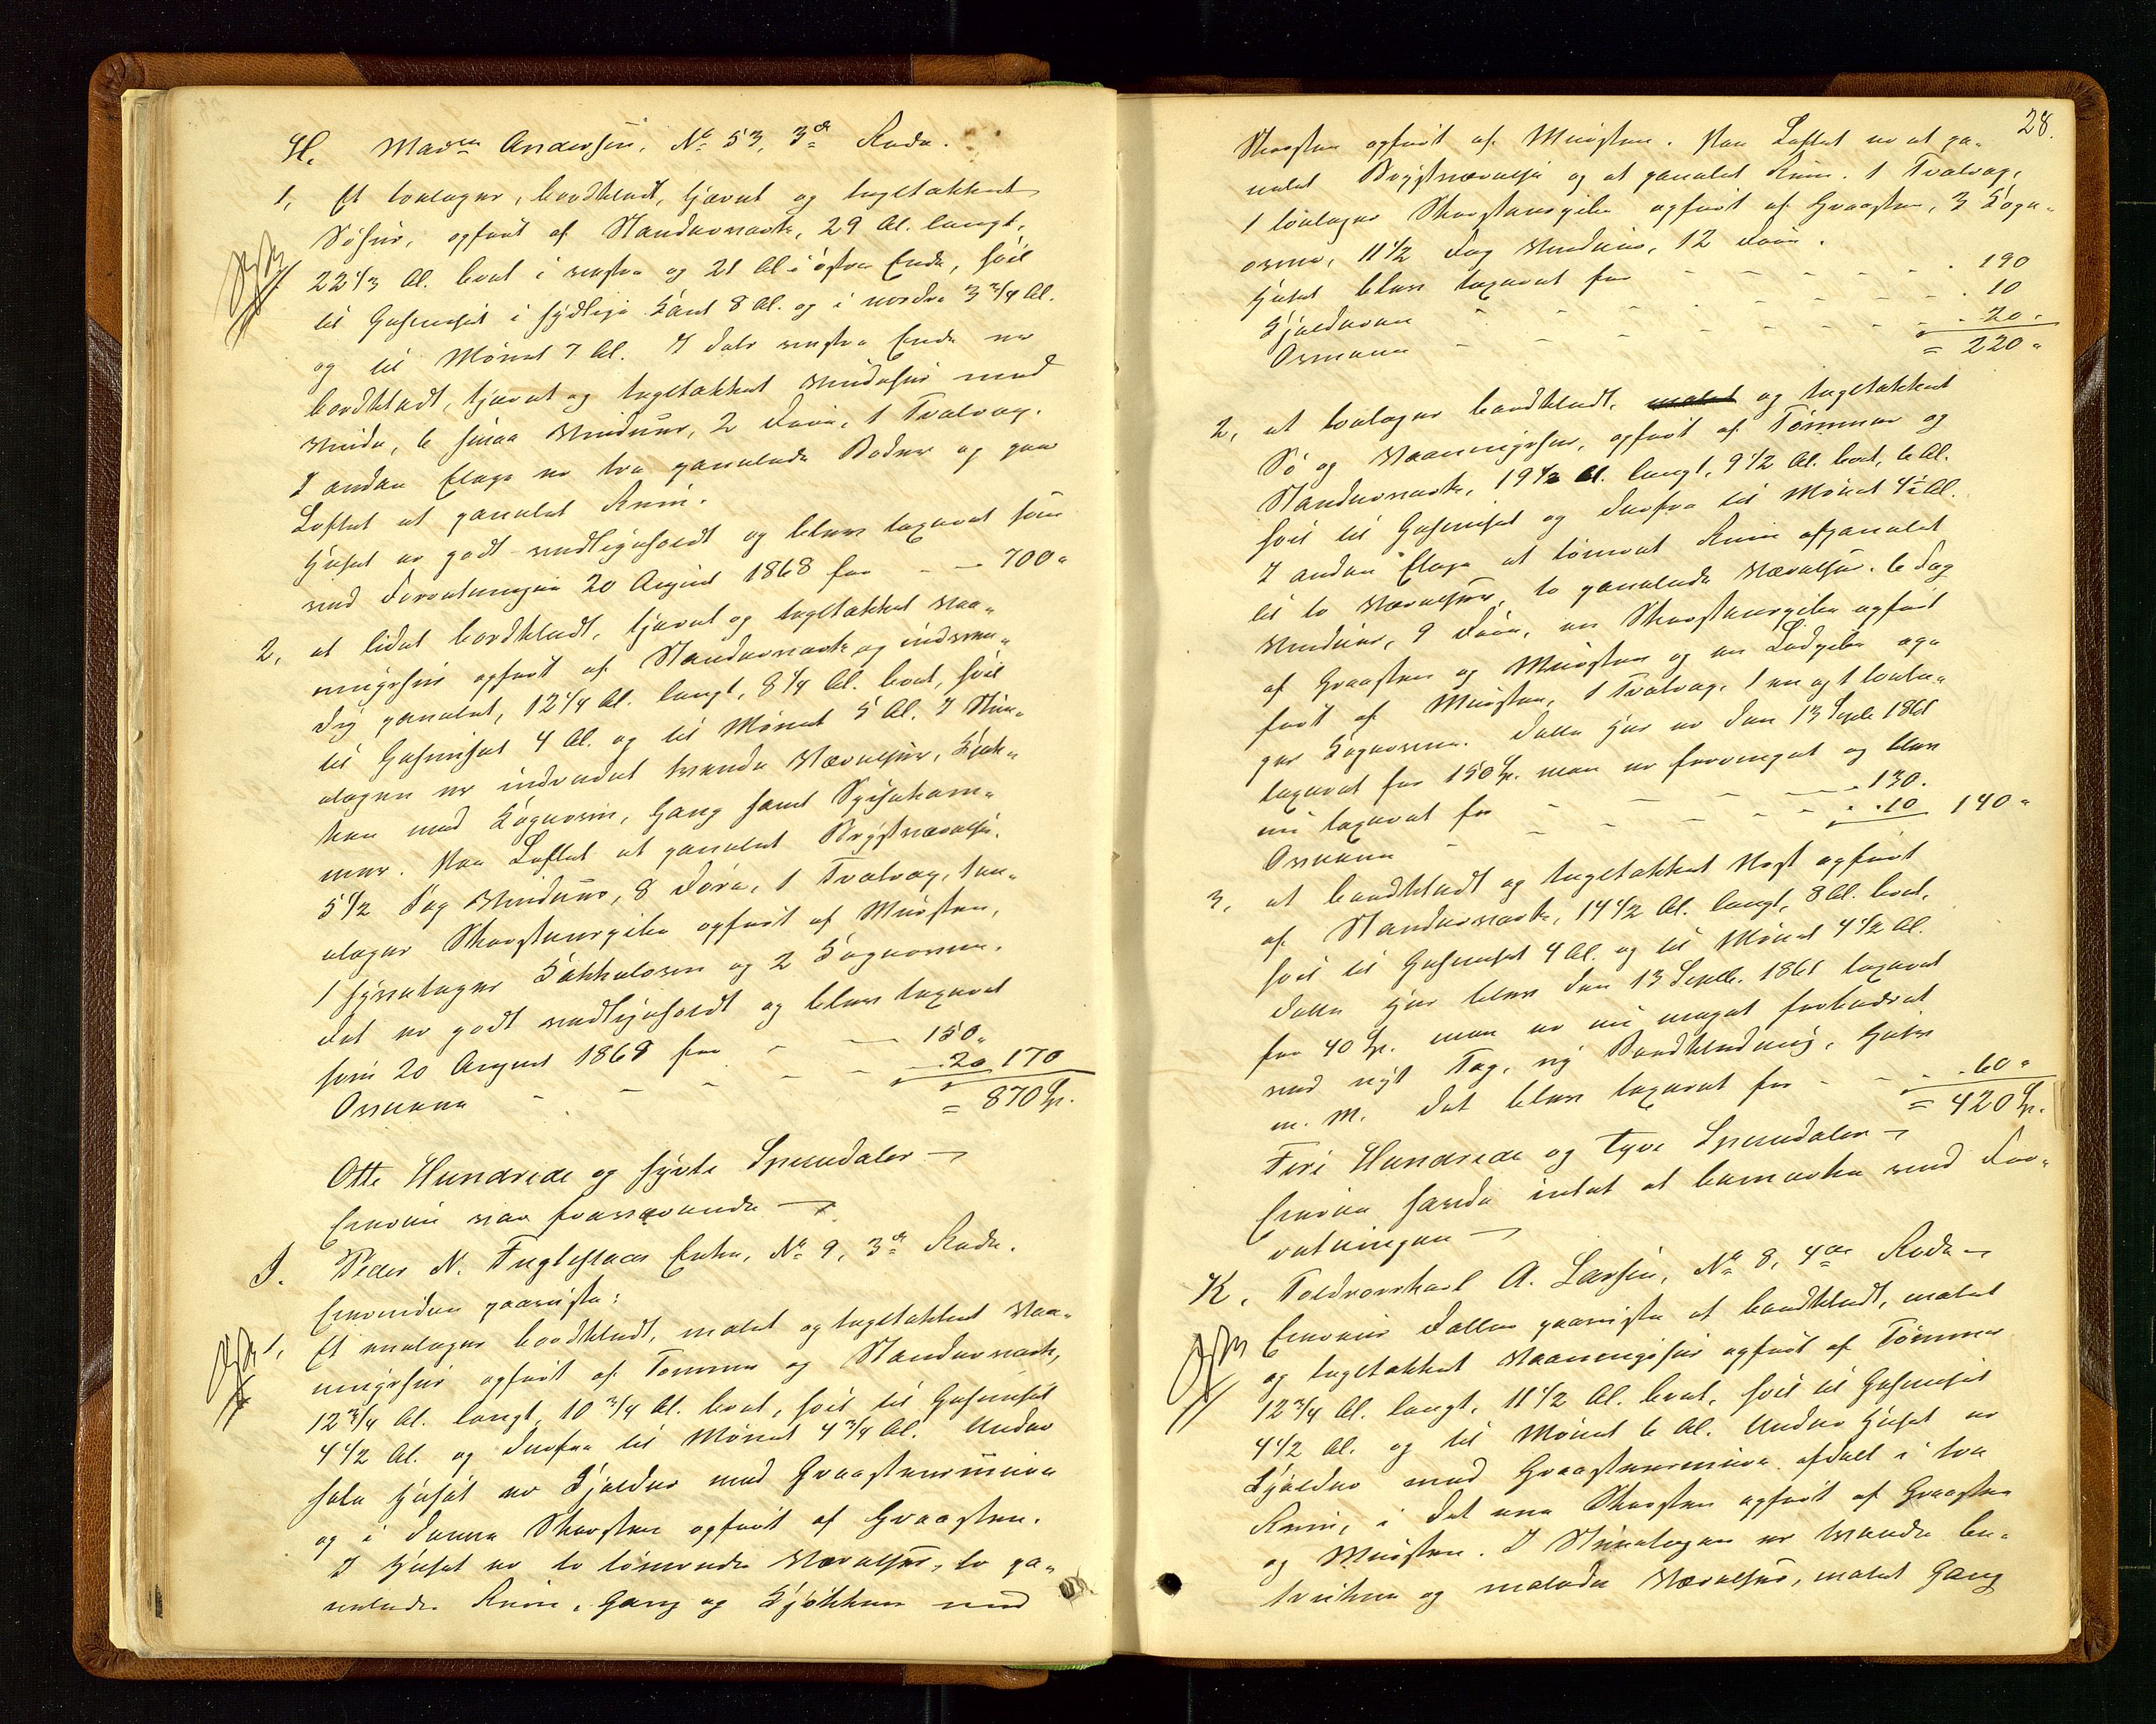 H. Mad^m Andersen, No 53, 3^de Rode.
1, Et toetages, bordklædt, tjæret og tegltækket
Söhus, opført af Standerværk, 29 Al. langt,
22 1/3 Al. bredt i vestre og 21 Al i østre Ende, høit
til Gesimset i sydlige Kant 8 Al. og i nordre 3 3/4 Al.
og til Mønet 7 Al. I dets vestre Ende er
bordklædt, tjæret og tegltækket Vindehus med
Vinde, 6 smaa Vinduer, 2 Døre, 1 Trætrap.
I anden Etage er tre panelede Boder og paa
Loftet et panelet Rum.
Huset er godt vedligeholdt og blev taxeret som
ved Forretningen 20 August 1868 for - - 700 "
2, et lidet bordklædt, tjæret og tegltækket Vaa-
ningshus opført af Standerværk og indven-
dig panelet, 12 1/4 Al. langt, 8 1/4 Al. bredt, høit
til Gesimset 4 Al. og til Mønet 5 Al. I Stue-
etagen er indredet tvende Værelser, Kjøk-
ken med Kogeovn, Gang samt Spisekam-
mer. Paa Loftet et panelet Brystværelse.
5 1/2 Fag Vinduer, 8 Døre, 1 Trætrap, toe-
etages Skorstenspibe opført af Mursten,
1 fyretages Kakkelovn og 2 Kogeovne.
Det er godt vedligeholdt og blev taxeret
som 20 August 1868 for - - 150 "
Ovnene - - - - - 20 170
= 870 Sp.
Otte Hundrede og syvti Speciedaler
Eieren var fraværende
I. Peder N. Fuglestads Enke, No 9, 3^de Rode.
Eiersken paaviste:
1, Et enetages bordklædt, malet og tegltækket Vaa-
ningshus opført af Tømmer og Standerværk,
12 3/4 Al. langt, 10 3/4 Al. bredt, høit til Gesimset
4 1/2 Al. og derfra til Mønet 4 3/4 Al. Under
hele Huset er Kjelder med Graastensmure
og i denne Skorsten opført af Graasten.
I Huset er to tømrede Værelser, to pa-
nelede Rum, Gang og Kjøkken med
28.
Skorsten opført af Mursten. Paa Loftet er et pa-
nelet Brystværelse og et panelet Rum. 1 Trætrap,
1 toetages Skorstenspibe opført af Graasten, 3 Koge-
ovne, 11 1/2 Fag Vinduer, 12 Døre.
Huset blev taxeret for - - - - 190
Kjelderen - - - - - 10
Ovnene - - - - - 20 "
= 220 "
2, et toetages bordklædt, malet og tegltækket
Sö og Vaaningshus, opført af Tømmer og
Standerværk, 19 1/2 Al. langt, 9 1/2 Al. bredt, 6 Al.
høit til Gesimset og derfra til Mønet 4 1/2 Al.
I anden Etage et tømret Rum afpanelet
til to Værelser, to panelede Værelser. 6 Fag
Vinduer, 9 Døre, en Skorstenspibe opført
af Graasten og Mursten og en Lodpibe op-
ført af Mursten, 1 Trætrap, 1 en og 1 toeta-
ges Kogeovn. Dette Hus er den 13 Septb 1861
taxeret for 150 Sp. men er forringet og blev
nu taxeret for - - - 130.
Ovnene - - - - 10 140 "
3, et bordklædt og tegltækket Nøst opført
af Standerværk, 14 1/2 Al. langt, 8 Al. bredt,
høit til Gesimset 4 Al. og til Mønet 4 1/2 Al.
Dette Hus blev den 13 Septb. 1861 taxeret
for 40 Sp. men er nu meget forbedret
ved nyt Tag, ny Bordklædning, Gulv
m. M. Det blev taxeret for - - - 60 "
= 420 Sp.
Fire Hundrede og tyve Speciedaler
Eieren havde intet at bemærke ved For-
retningen
K, Toldroerskarl A. Larsen, No 8, 4^de Rode
Eieren Dallen paaviste et bordklædt, malet
og tegltækket Vaaningshus opført af Tømmer
12 3/4 Al. langt, 11 1/2 Al. bredt, høit til Gesimset
4 1/2 Al. og til Mønet 6 Al. Under Huset er
Kjelder med Graastensmure afdelt i tre
Rum, i det ene Skorsten opført af Graasten
og Mursten. I Stueetagen er tvende be-
trukne og malede Værelser, malet Gang